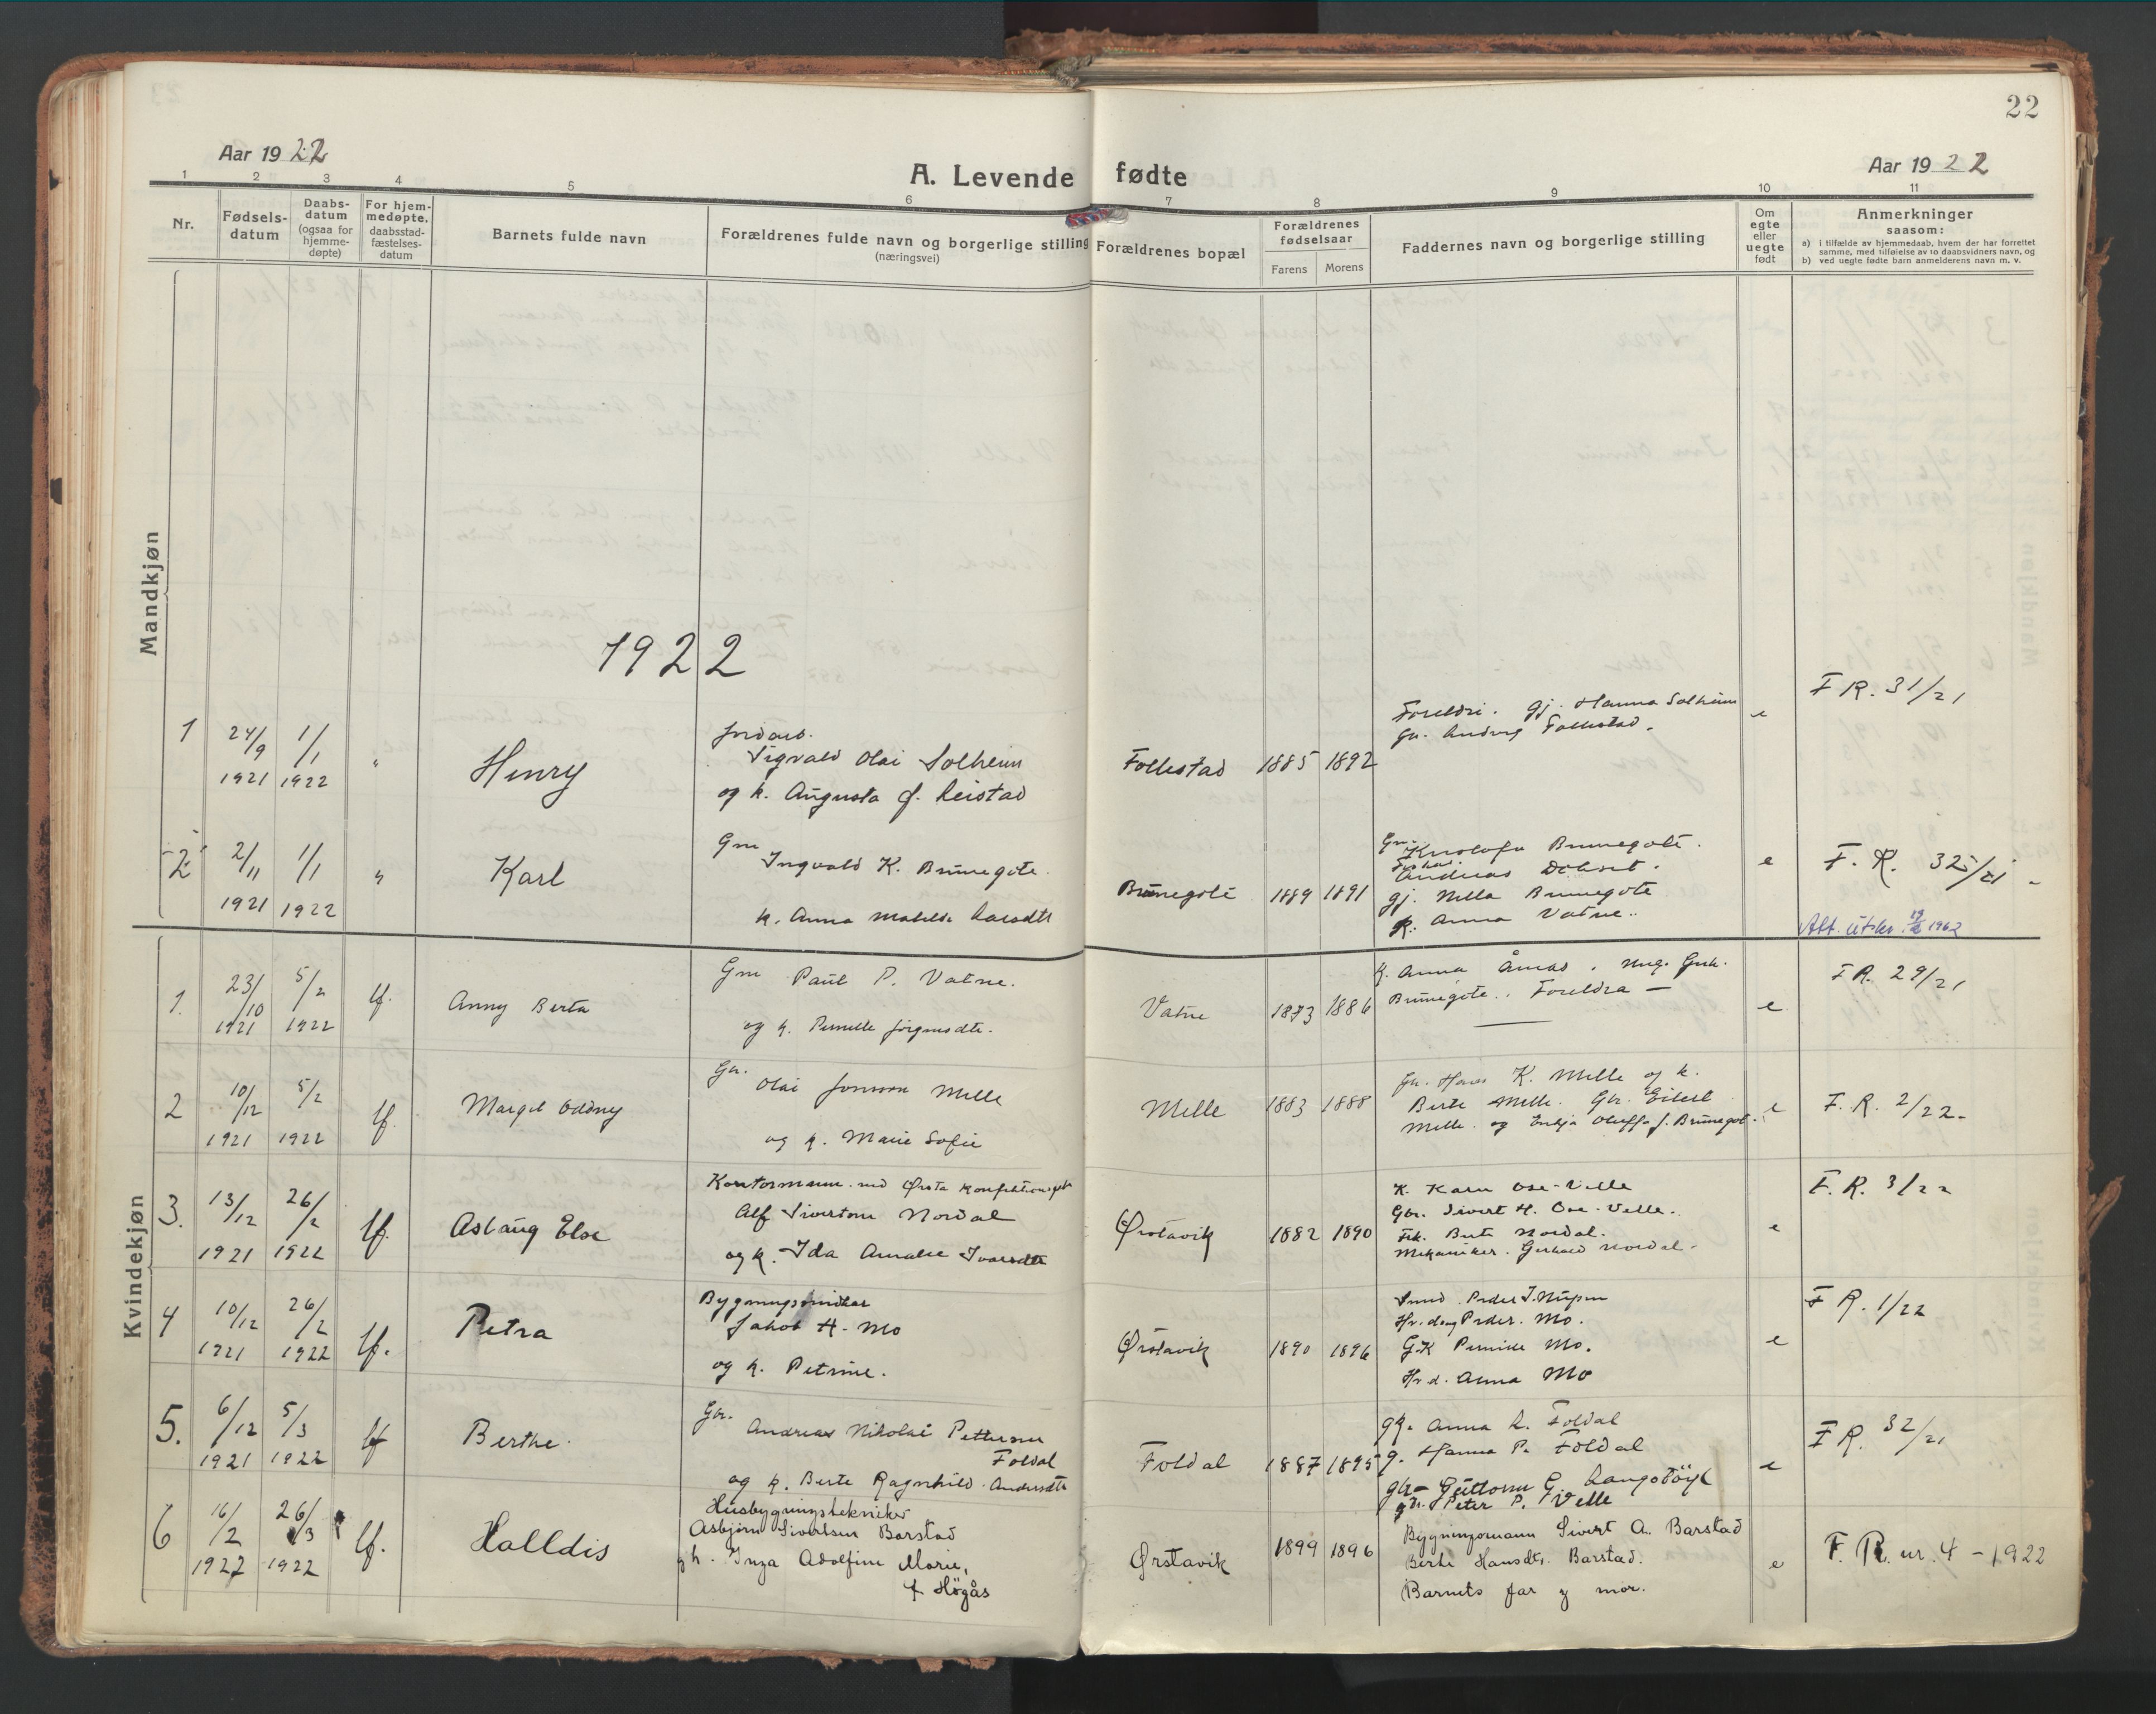 22
Aar 1922
A. Levende fødte
Aar 1922
1 2 3 4 5 6 7 8 9 10 11
Nr.
Fødsels-
datum
Daabs-
datum
(ogsaa for
hjemme-
døpte)
For hjem-
medøpte,
daabsstad-
fæstelses-
datum
Barnets fulde navn
Forældrenes fulde navn og borgerlige stilling
(næringsvei)
Forældrenes bopæl
Forældrenes
fødselsaar
Farens Morens
Faddernes navn og borgerlige stilling
Om
egte
eller
uegte
født
Anmerkninger
saasom:
a) i tilfælde av hjemmedaab, hvem der har forrettet
samme, med tilføielse av to daabsvidners navn, og
b) ved uegte fødte barn anmelderens navn m. v.
Mandkjøn
1922
1 24/9 1921 1/1 1922 "
Henry
Sigvald Olai Solheim
og k. Augusta f. Leistad
Follestad 1885 1892
Foreldri. gj. Hanna Solheim
Follestad.
e
F R. 31/21
2 2/11 1921 1/1 1922 "
Karl
Gm
Ingvald K. Brunegote
k. Anna Matilde Larsdtr
Brunegote 1889 1891
Gm. Brunegote.
Andreas
gj. Nella Brunegote
k. Anna Vatne..
e
F. R. 32/21
Att. utskr. 1962
Kvindekjøn
1. 23/10 1921 5/2 1922 lf.
Anny Berta
Gm Paul P. Vatne.
og k. Pernille Jørgensdtr.
Vatne 1873 1886
k. Anna Åmås. Ung.
Brunegote.. Foreldra —
e
F R. 29/21
2 10/12 1921 5/2 1922 lf.
Margit Oddny
Gr. Olai Jonsson Melle
og k. Marie Sofie
Melle 1883 1888
Gr. Hans K. Melle og k.
Berte Melle. Gr. Eilert
Melle. og Enkja Oluffa f. Brunegot.
e
F. R. 2/22-
3. 13/12 1921 26/2 1922 lf.
Aslaug Else
Kontormann ved Ørsta
Alf Sivertsen Nordal
og k. Ida Amalie Ivarsdtr
Ørstavik 1882 1890
K. Karen Ose-Velle
Gbr. Sivert H. Ose-Velle.
Frk. Berte Nordal.
Mekaniker. Nordal.
e
F. R. 3/22
4 10/12 1921 26/2 1922 lf.
Petra
Bygningssnidkar
Jakob H. Mo
og k. Petrine.
Ørstavik 1890 1896
Smed. Peder J. Nupen
Peder. Mo.
G.K Pernille Mo.
Anna Mo
e
F R. 1/22
5. 6/12 1921 5/3 1922 lf
Berthe.
Gbr.
Andreas Nikolai Pettersen
Foldal
og k. Berte Ragnhild Andersdtr
Foldal 1887 1895
gk. Anna L. Foldal
g. Hanna P. Foldal
gbr- Guttorm G. Langstöyl
gdr. Peter P. Velle
e
F R. 32/21
6 16/2 1922 26/3 1922 lf.
Halldis
Husbygningstekniker
Asbjørn Sivertsen Barstad
og h. Inga Adolfine Marie,
f. Högås
Ørstavik 1899 1896
Bygningsmann Sivert A. Barstad
Berte Hansdtr. Barstad.
Barnets far og mor.
e
F. R. nr. 4 - 1922